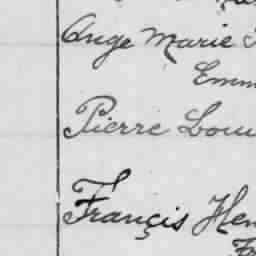 Ange Marie
Emm
Pierre Loui
Françis Hen
Fr